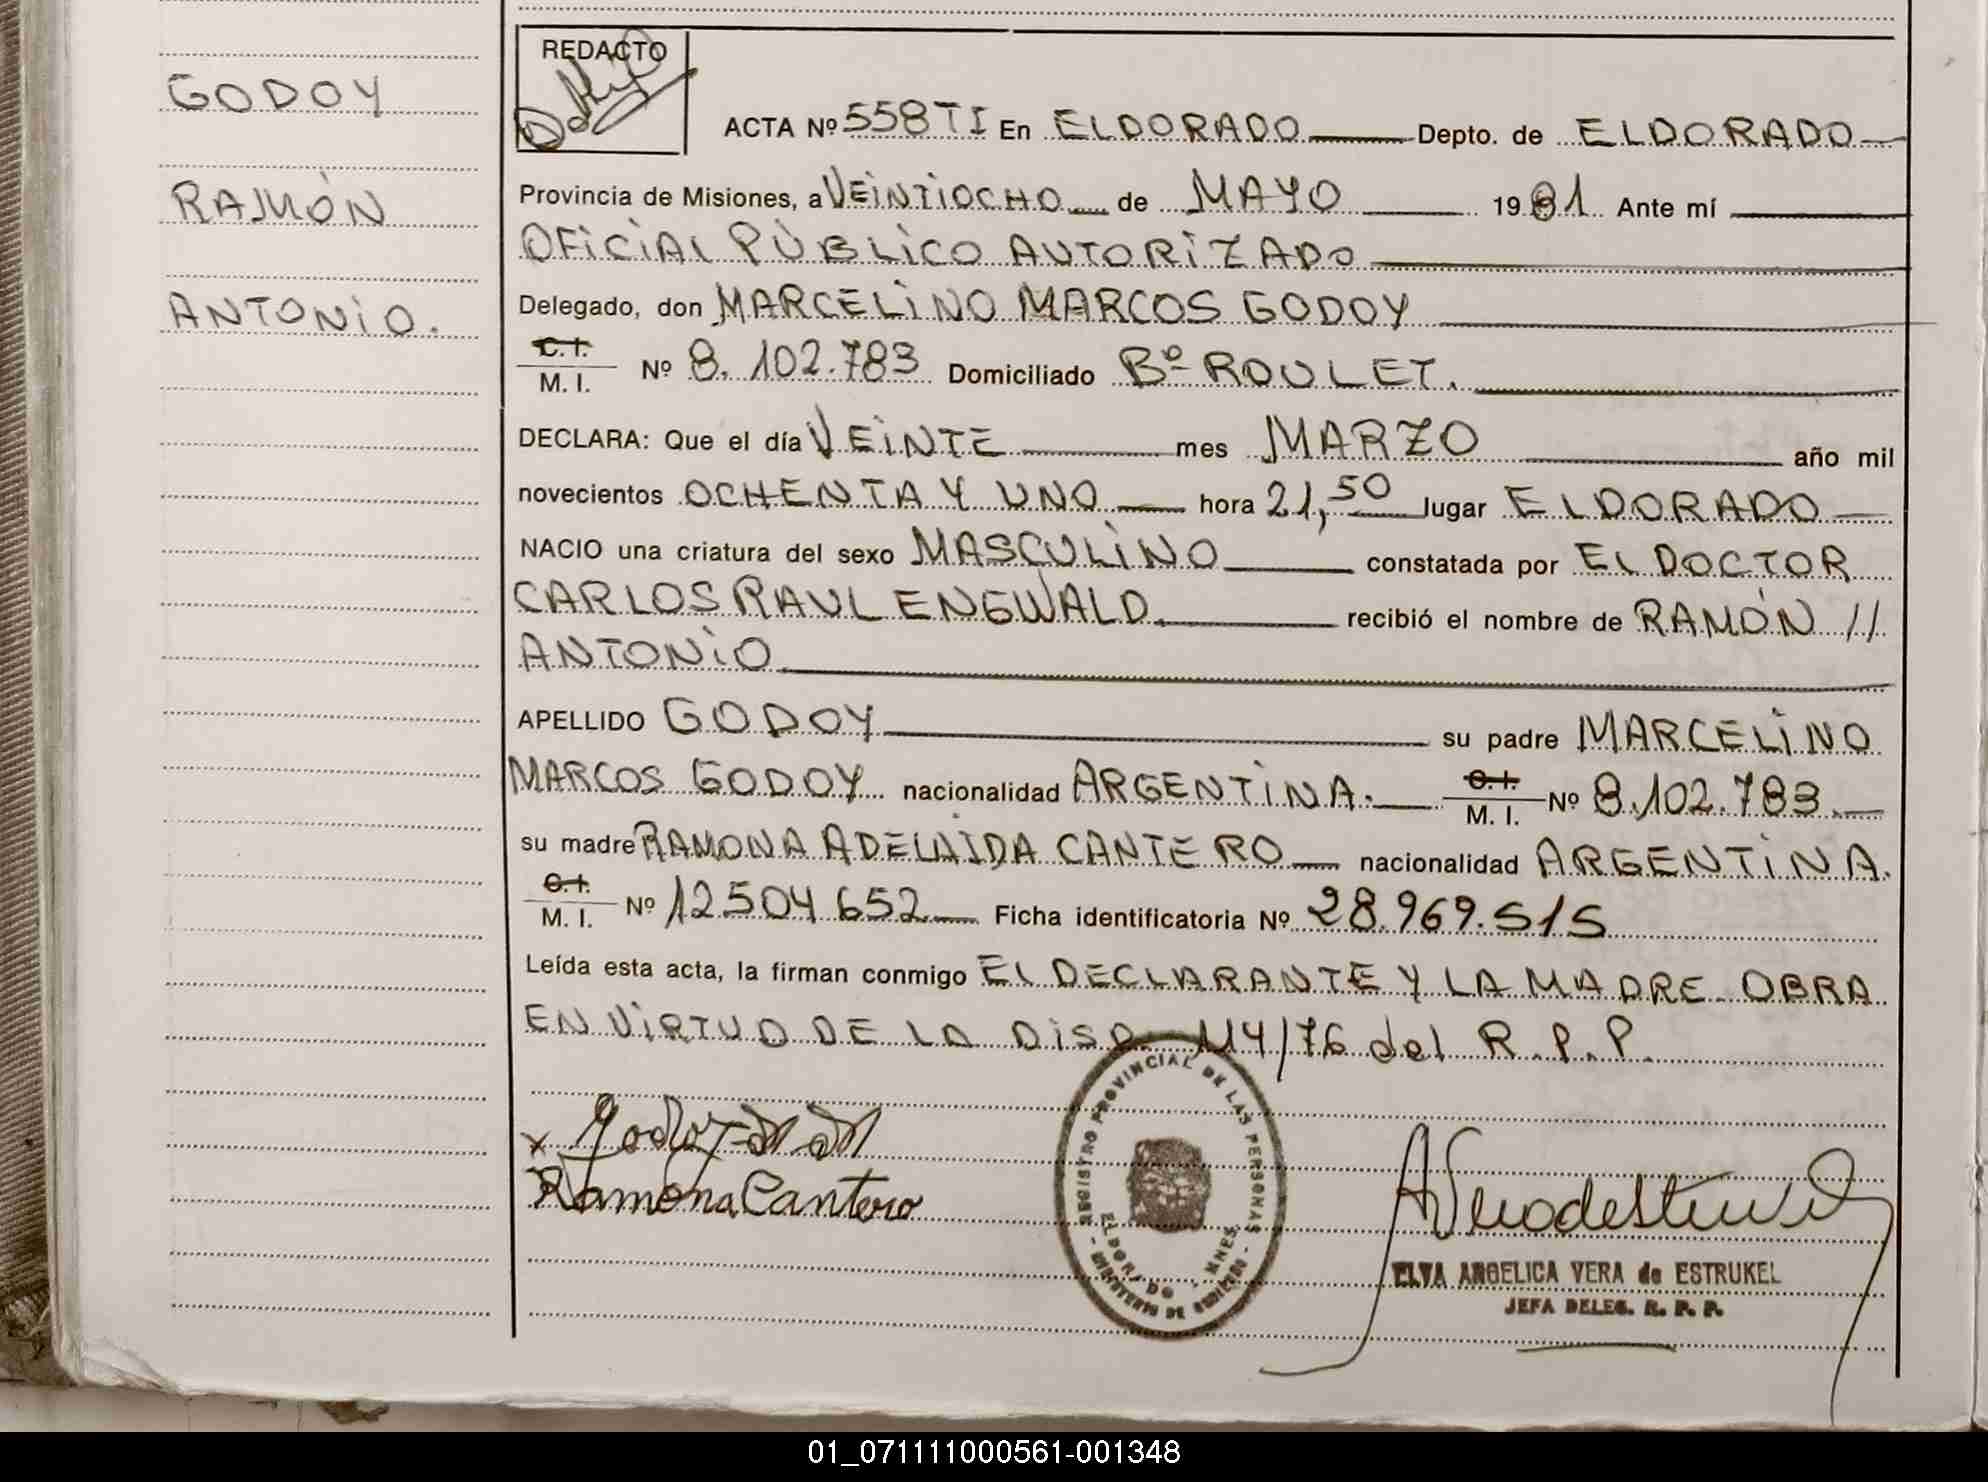 GODOY
RAMÓN
ANTONIO.
REDACTO
ACTA Nº 558 T I En ELDORADO Depto. de ELDORADO
Provincia de Misiones, a VEINTIOCHO de MAYO 1981 Ante mí
OFICIAL PÚBLICO AUTORIZADO
Delegado, don MARCELINO MARCOS GODOY
C. I.
M. I. Nº 8.102.783 Domiciliado Bº ROULET.
DECLARA: Que el día VEINTE mes MARZO año mil
novecientos OCHENTA Y UNO hora 21,50 lugar ELDORADO
NACIO una criatura del sexo MASCULINO constatada por EL DOCTOR
CARLOS RAUL ENGWALD. recibió el nombre de RAMÓN //
ANTONIO
APELLIDO GODOY su padre MARCELINO
MARCOS GODOY nacionalidad ARGENTINA. C. I. M. I. Nº 8.102.783.
su madre RAMONA ADELAIDA CANTERO nacionalidad ARGENTINA.
C. I.
M. I. Nº 12504652 Ficha identificatoria Nº 28.969.515
Leída esta acta, la firman conmigo EL DECLARANTE Y LA MADRE OBRA
EN VIRTUD DE LA DISP. 114/76 del R.P.P.
REGISTRO PROVINCIAL DE LAS PERSONAS
ELDORADO - MNES.
- MINISTERIO DE GOBIERNO -
x Godoy M M
Ramona Cantero
ELVA ANGELICA VERA de ESTRUKEL
JEFA DELEG. R. P. P.
01_071111000561-001348